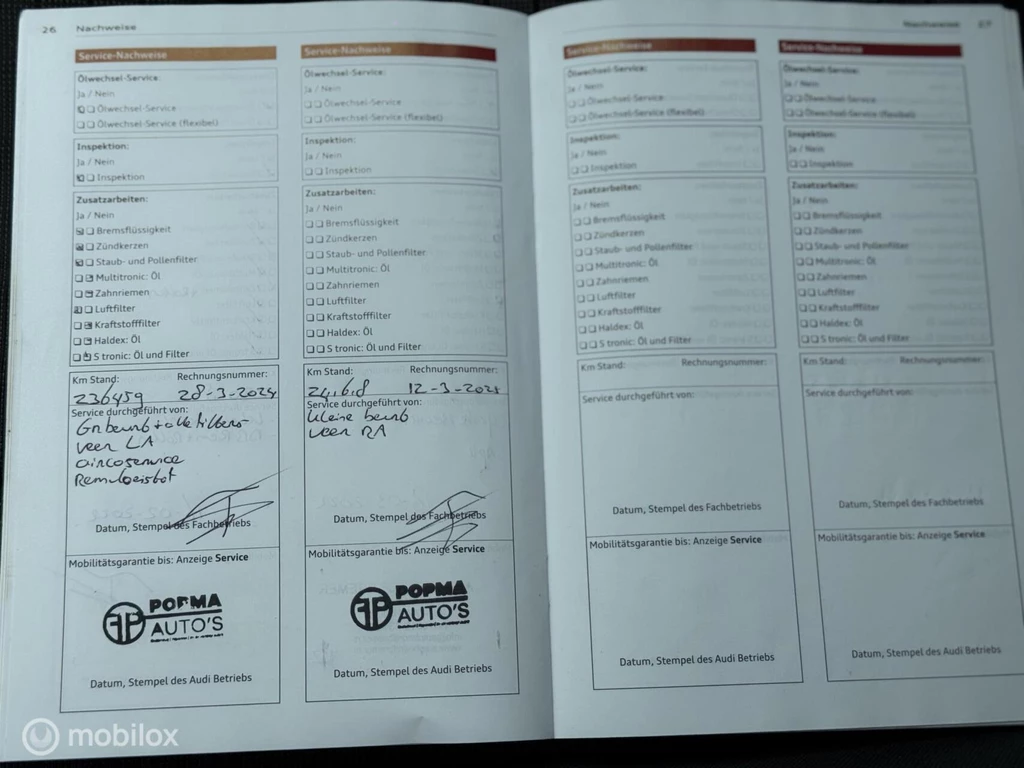 26 Nachweise
Service-Nachweise
Ölwechsel-Service:
Ja / Nein
Ölwechsel-Service
Ölwechsel-Service (flexibel)
Inspektion:
Ja / Nein
Inspektion
Zusatzarbeiten:
Ja / Nein
Bremsflüssigkeit
Zündkerzen
Staub- und Pollenfilter
Multitronic: Öl
Zahnriemen
Luftfilter
Kraftstofffilter
Haldex: Öl
S tronic: Öl und Filter
Km Stand: Rechnungsnummer:
236459 28-3-2024
Service durchgeführt von:
veer LA
aircoservice
Datum, Stempel des Fachbetriebs
Mobilitätsgarantie bis: Anzeige Service
POPMA
AUTO'S
Datum, Stempel des Audi Betriebs
Service-Nachweise
Ölwechsel-Service:
Ja / Nein
Ölwechsel-Service
Ölwechsel-Service (flexibel)
Inspektion:
Ja / Nein
Inspektion
Zusatzarbeiten:
Ja / Nein
Bremsflüssigkeit
Zündkerzen
Staub- und Pollenfilter
Multitronic: Öl
Zahnriemen
Luftfilter
Kraftstofffilter
Haldex: Öl
S tronic: Öl und Filter
Km Stand: Rechnungsnummer:
Service durchgeführt von:
kleine beurt
veer RA
Datum, Stempel des Fachbetriebs
Mobilitätsgarantie bis: Anzeige Service
POPMA
AUTO'S
Datum, Stempel des Audi Betriebs
Service-Nachweise
Ölwechsel-Service:
Ja / Nein
Ölwechsel-Service
Ölwechsel-Service (flexibel)
Inspektion:
Ja / Nein
Inspektion
Zusatzarbeiten:
Ja / Nein
Bremsflüssigkeit
Zündkerzen
Staub- und Pollenfilter
Multitronic: Öl
Zahnriemen
Luftfilter
Kraftstofffilter
Haldex: Öl
S tronic: Öl und Filter
Km Stand: Rechnungsnummer:
Service durchgeführt von:
Datum, Stempel des Fachbetriebs
Mobilitätsgarantie bis: Anzeige Service
Datum, Stempel des Audi Betriebs
Service-Nachweise
Ölwechsel-Service:
Ja / Nein
Ölwechsel-Service
Ölwechsel-Service (flexibel)
Inspektion:
Ja / Nein
Inspektion
Zusatzarbeiten:
Ja / Nein
Bremsflüssigkeit
Zündkerzen
Staub- und Pollenfilter
Multitronic: Öl
Zahnriemen
Luftfilter
Kraftstofffilter
Haldex: Öl
S tronic: Öl und Filter
Km Stand: Rechnungsnummer:
Service durchgeführt von:
Datum, Stempel des Fachbetriebs
Mobilitätsgarantie bis: Anzeige Service
Datum, Stempel des Audi Betriebs
mobilox